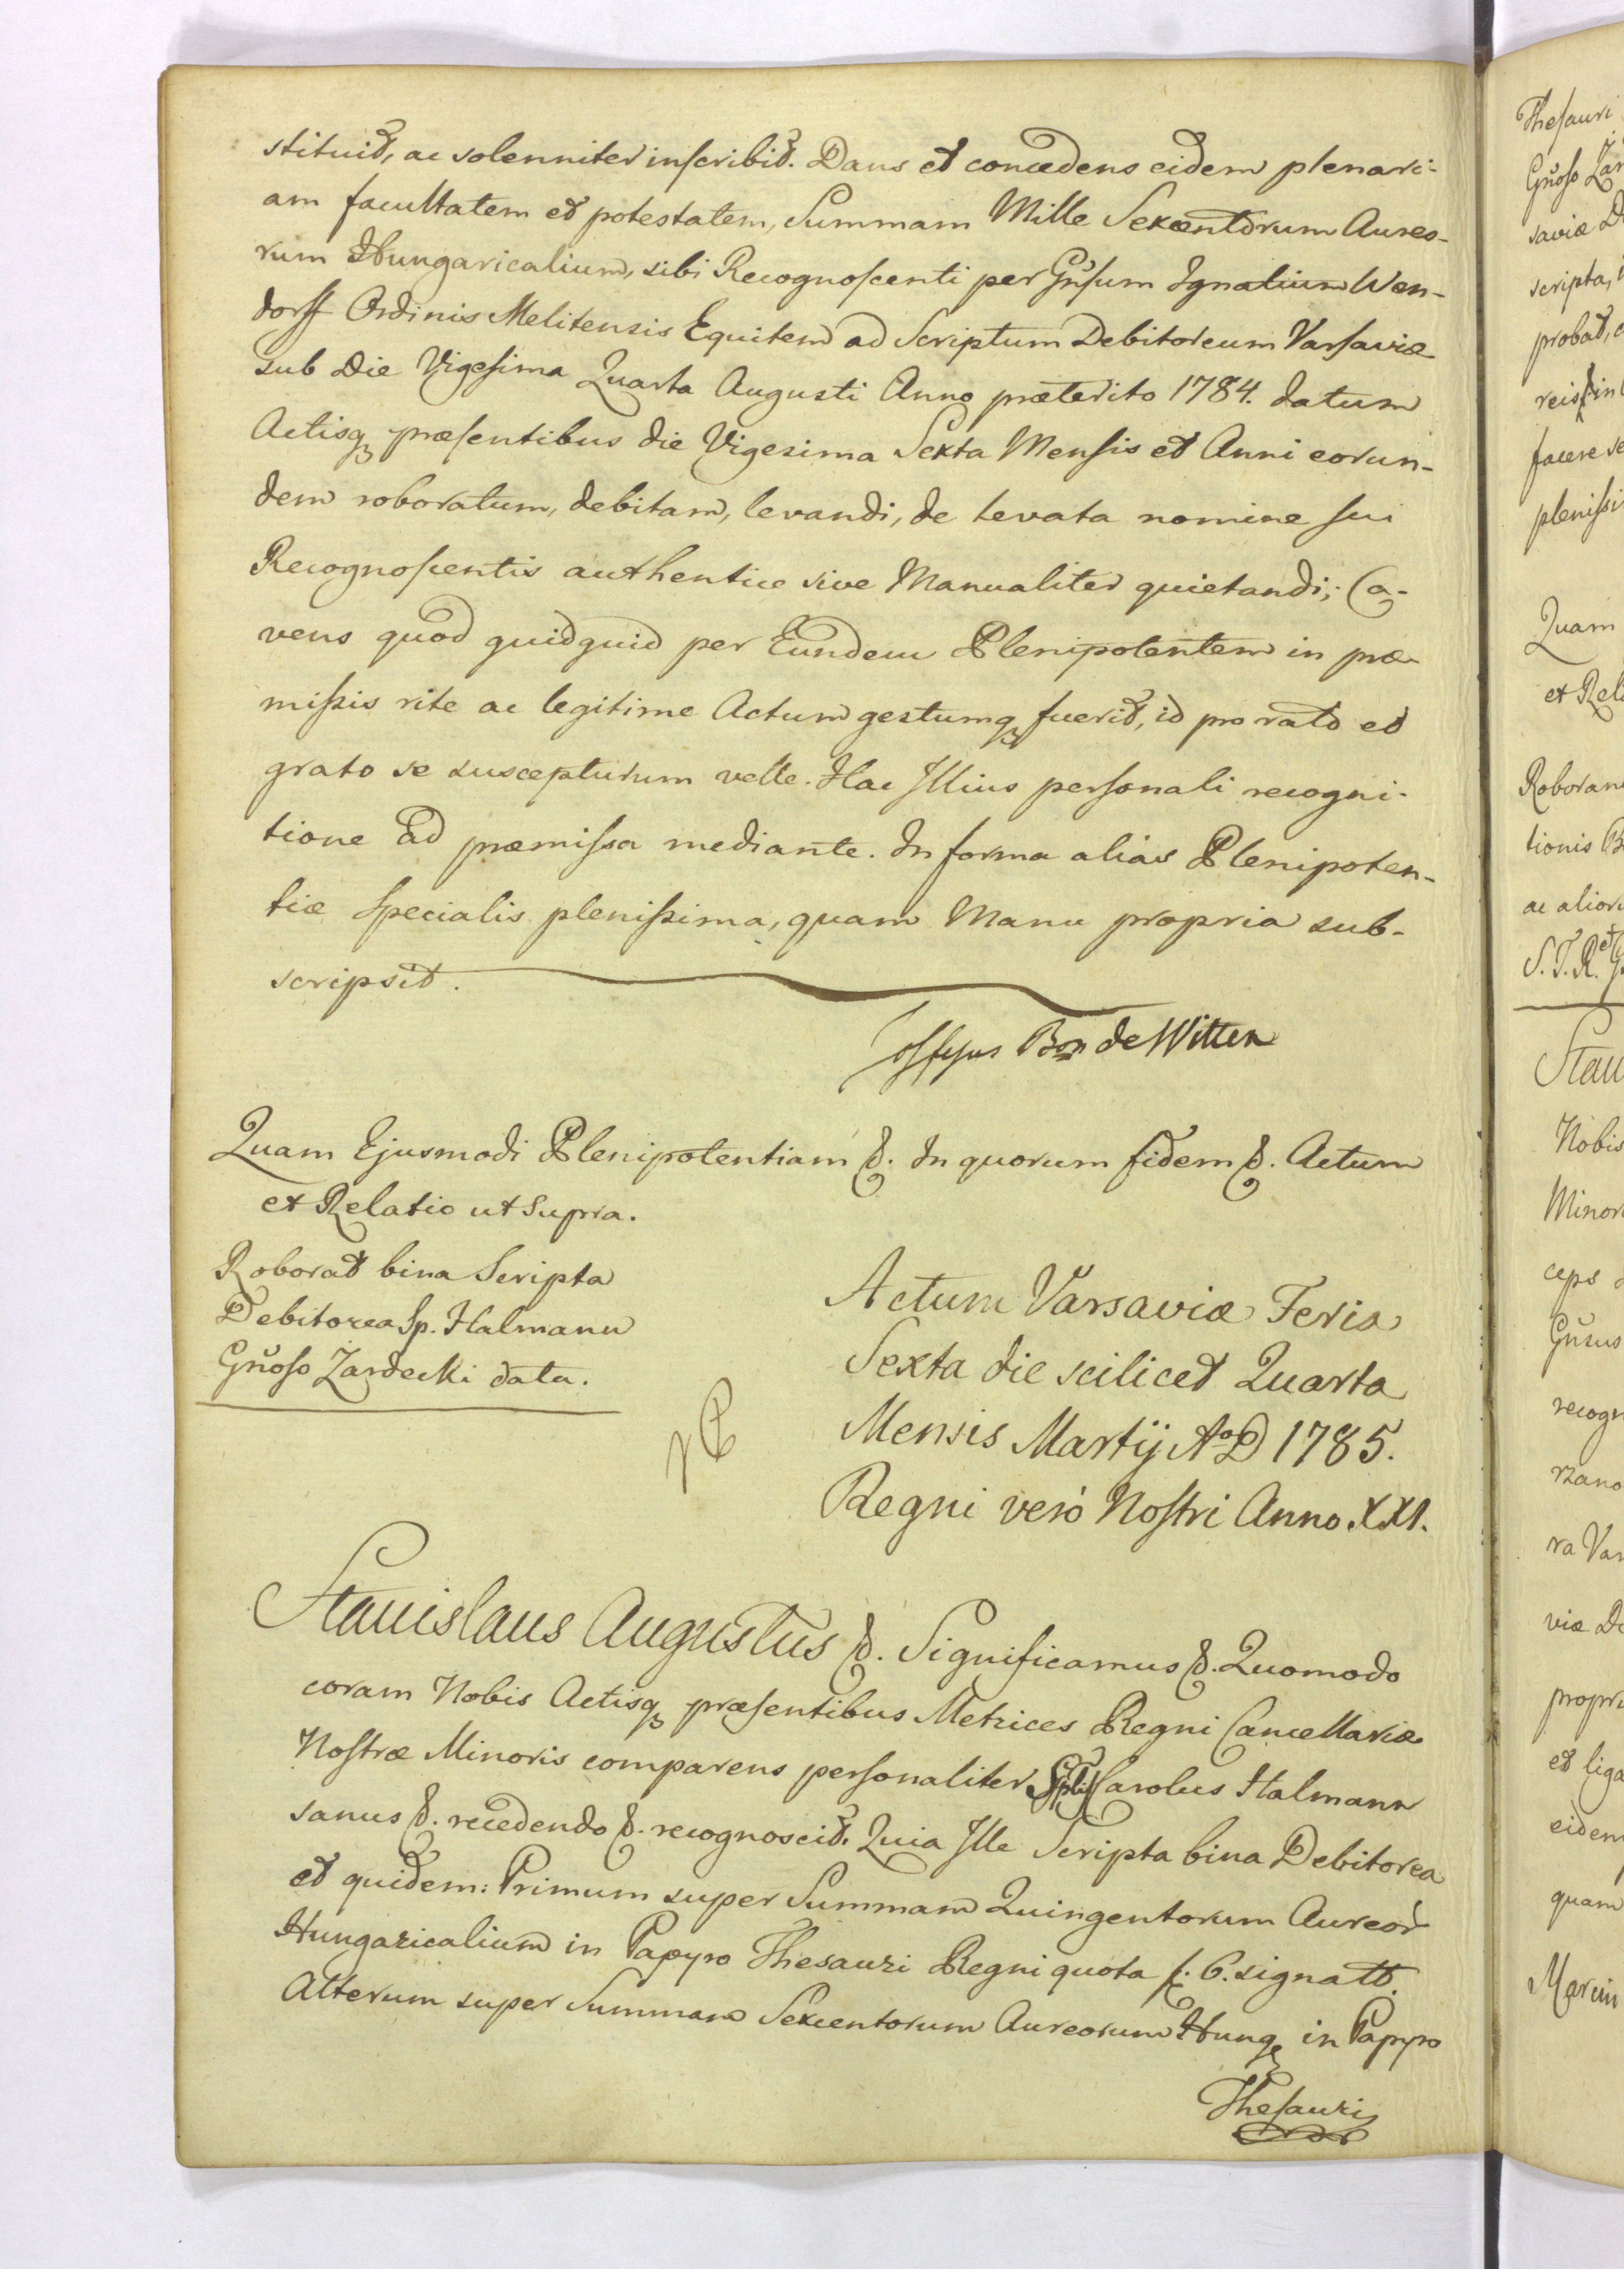 stituit, ac solenniter inscribit. Dans et concedens eidem plenari-
am facultatem et potestatem, Summam Mille Sexcentorum Aureo-
rum Hungaricalium, sibi Recognoscenti per Gnsum Ignatium Wen-
dorff Ordinis Melitensis Equitem ad Scriptum Debitoreum Varsaviæ
sub Die Vigesima Quarta Augusti Anno præterito 1784. datum
Actisq præsentibus die Vigesima Sexta Mensis et Anni eorun-
dem roboratum, debitam, levandi, de levata nomine sui
Recognoscentis authentice sive Manualiter quietandi; Ca-
vens quod quidquid per Eundem Plenipotentem in præ-
missis rite ac legitime Actum gestumq fuerit, id pro rato et
grato se suscepturum velle. Hac Illius personali recogni-
tione ad præmissa mediante. In forma alias Plenipoten-
tiæ specialis plenissima, quam Manu propria sub-
scripsit.
de Witten
Quam Ejusmodi Plenipotentiam &. In quorum fidem &. Actum
et Relatio ut supra.
Roborat bina Scripta
Debitorea Sp. Halmann
Gnoso Zardecki data.
Actum Varsaviæ Feria
Sexta die scilicet Quarta
Mensis Martij AoD 1785.
Regni verò Nostri Anno XXI.
Stanislaus Augustus &. Significamus &. Quomodo
coram Nobis Actisq præsentibus Metrices Regni Cancellariæ
Nostræ Minoris comparens personaliter Carolus Halmann
sanus &. recedendo &. recognoscit. Quia Ille Scripta bina Debitorea
et quidem: Primum super Summam Quingentorum Aureor
Hungaricalium in Papyro Thesauri Regni quota f. 6. signatt.
Alterum super Summam Sexcentorum Aureorum Hung in Papyro
Thesauri
Thesauri
Gnoso
saviæ
scripta,
probat,
facere
Quam
tionis
S. T. R.
Nobis
Gnsus
rzano
quam